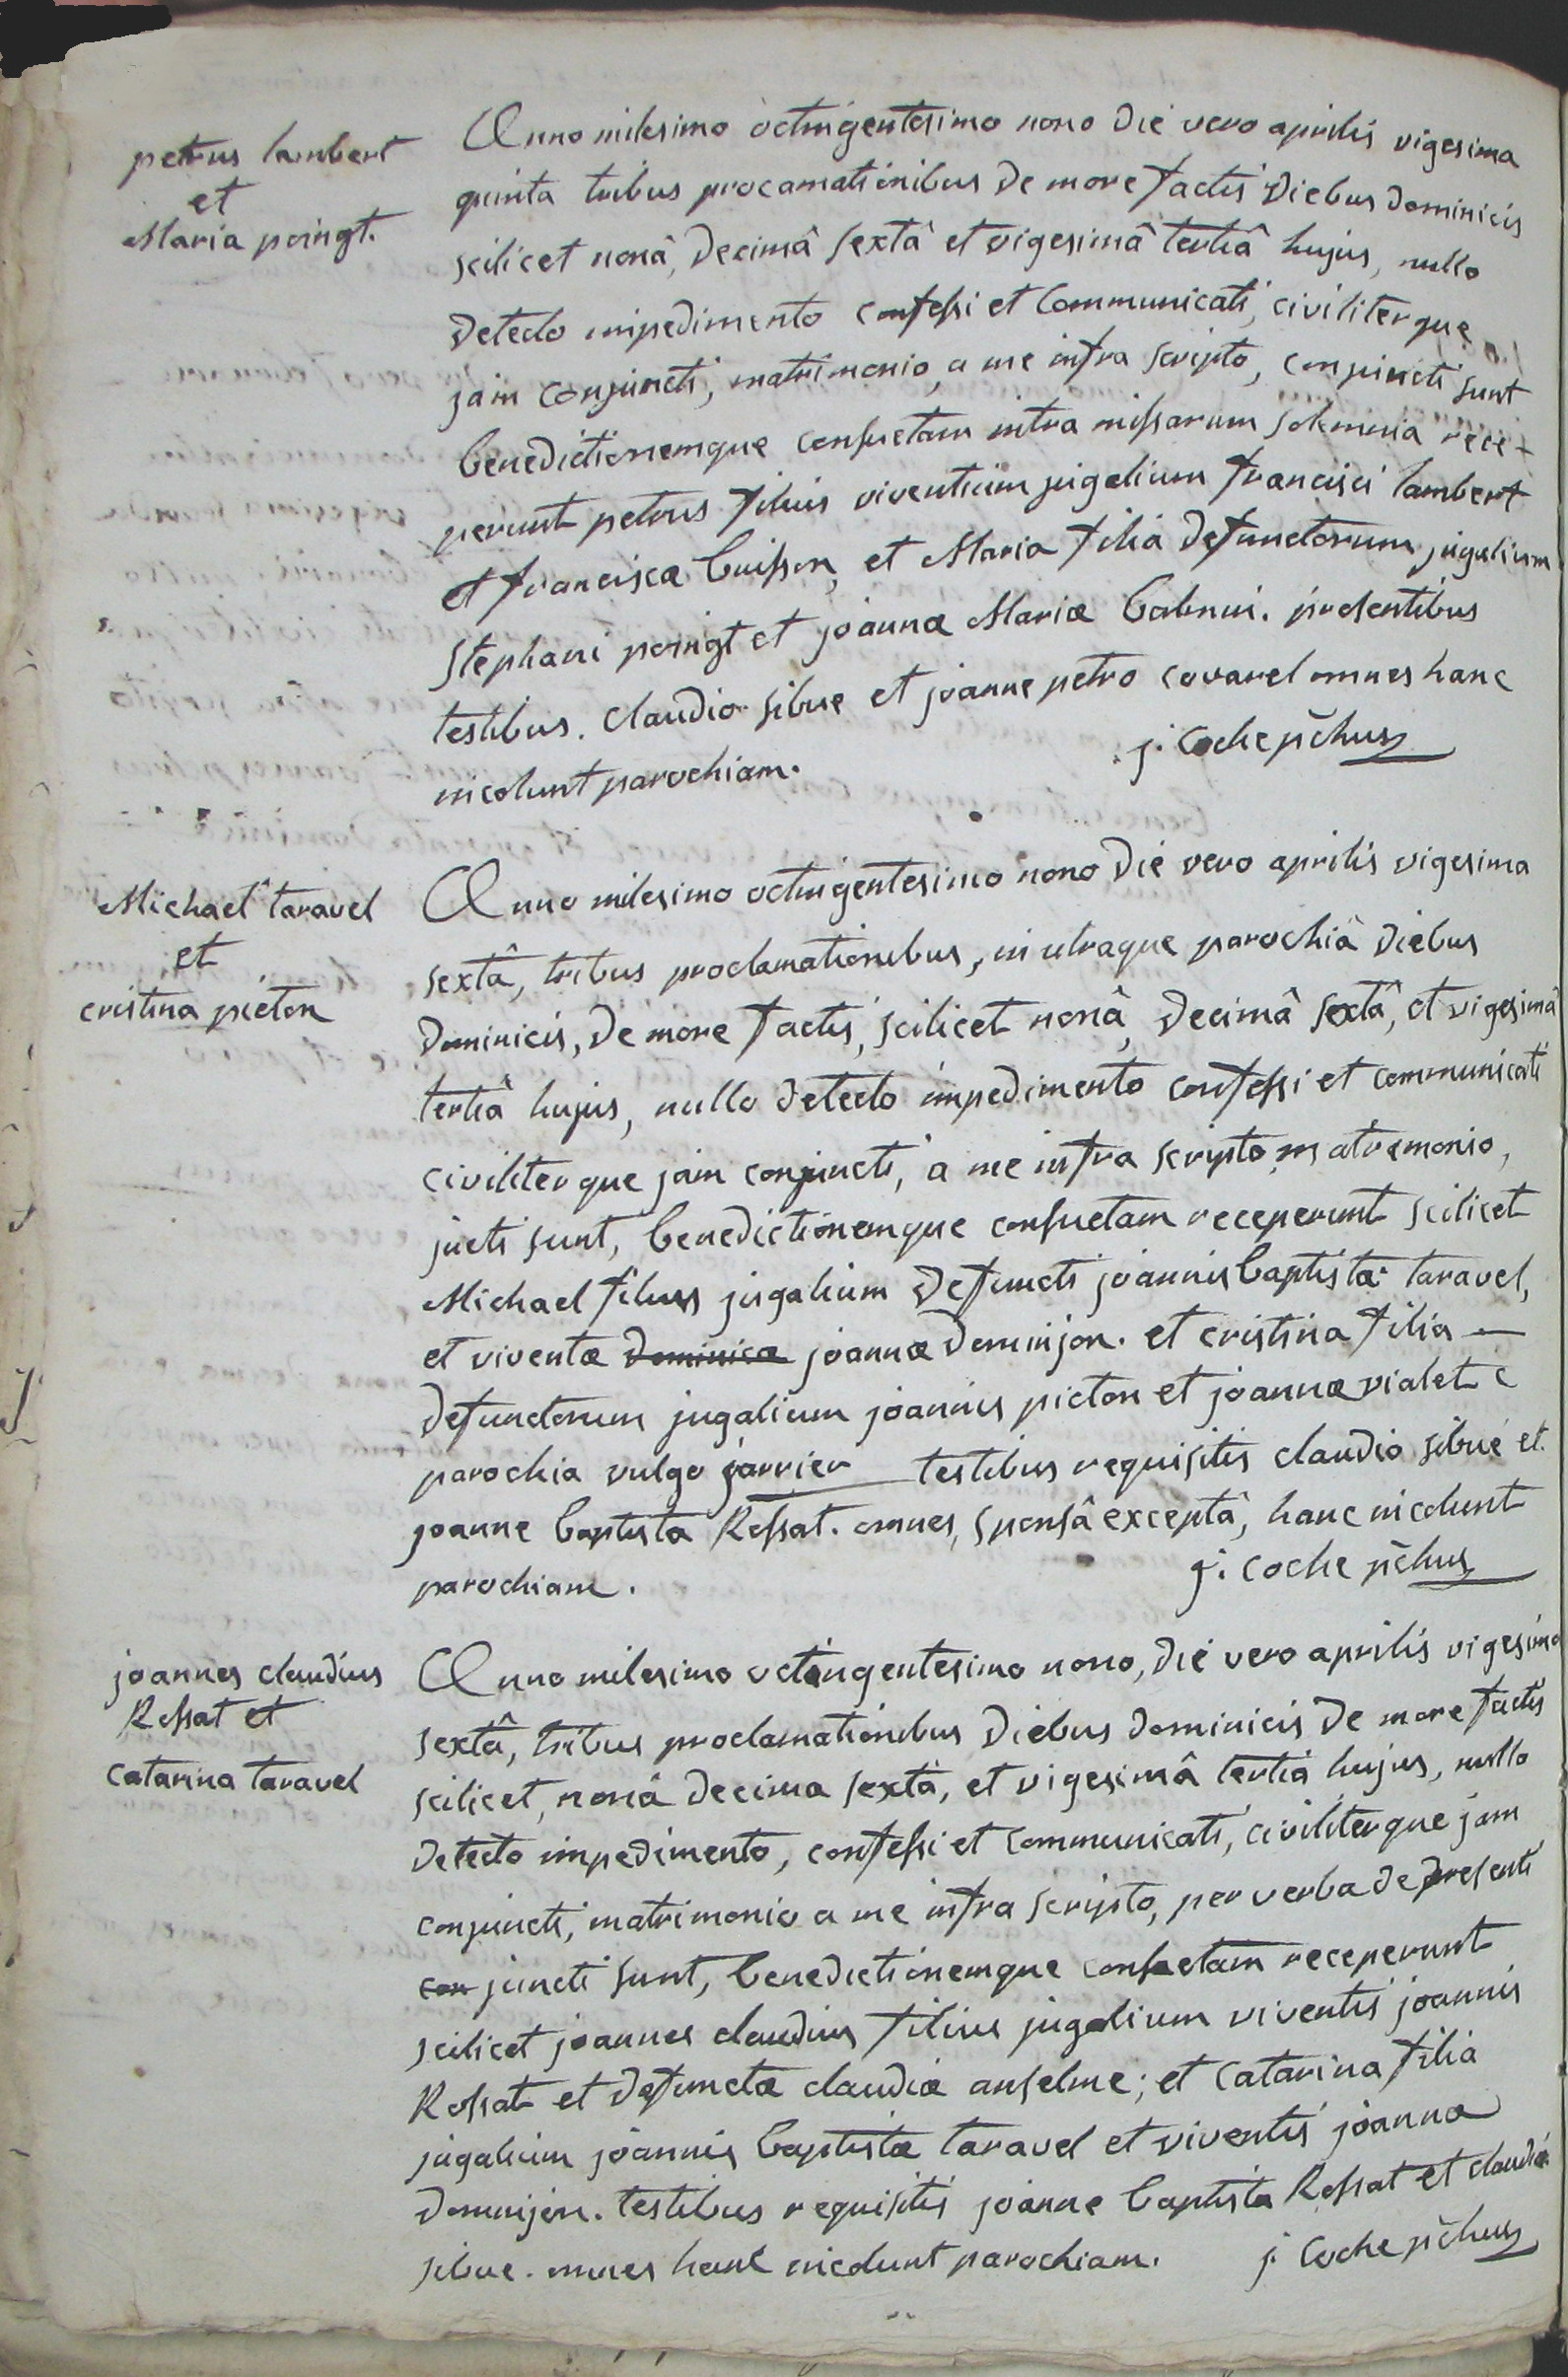 petrus lambert
et
Maria poingt.
Anno milesimo octingentesimo nono die vero aprilis vigesima
quinta tribus procamationibus de more factis diebus dominicis
scilicet nonâ, decimâ sextâ et vigesimâ tertiâ hujus, nullo
detecto impedimento confessi et communicati, civiliterque
jam conjuncti, matrimonio, a me infra scripto, conjuncti sunt
benedictionemque consuetam intra missarum solemnia rece-
perunt petrus filius viventium jugalium francisci lambert
et franciscæ buisson, et Maria filia defunctorum jugalium
stephani poingt et joannæ Mariæ. presentibus
testibus. claudio sibue et joanne petro covarel omnes hanc
incolunt parochiam.
j. coche pchus
Michael taravel
et
cristina picton
Anno milesimo octingentesimo nono die vero aprilis vigesima
sextâ, tribus proclamationibus, in utraque parochiâ diebus
dominicis, de more factis, scilicet nonâ, decimâ sextâ, et vigesimâ
tertiâ hujus, nullo detecto impedimento confessi et communicati
civiliterque jam conjuncti, a me infra scripto matremonio,
jucti sunt, benedictionemque consuetam receperunt scilicet
Michael filius jugalium defuncti joannis baptistæ taravel,
et viventæ dominicæ joannæ dominjon. et cristina filia —
defunctorum jugalium joannis picton et joannæ vialet e
parochia vulgo jarrier testibus requisitis claudio sibué et
joanne baptista Rossat. omnes, sponsâ exceptâ, hanc incolunt
parochiam.
j. coche pchus
joannes claudius
Rossat et
catarina taravel
Anno milesimo octingentesimo nono, die vero aprilis vigesima
sextâ, tribus proclamationibus diebus dominicis de more factis
scilicet, nonâ decima sextâ, et vigesimâ tertiâ hujus, nullo
detecto impedimento, confessi et communicati, civiliterque jam
conjuncti, matrimonio a me infra scripto, per verba de presenti
con juncti sunt, benedictionemque consuetam receperunt
scilicet joannes claudius filius jugalium viventis joannis
Rossat et defunctæ claudiæ anselme; et catarina filia
jugalium joannis baptistæ taravel et viventis joannæ
dominjon. testibus requisitis joanne baptista Rossat et claudio
sibue. omnes hanc incolunt parochiam.
j. coche pchus